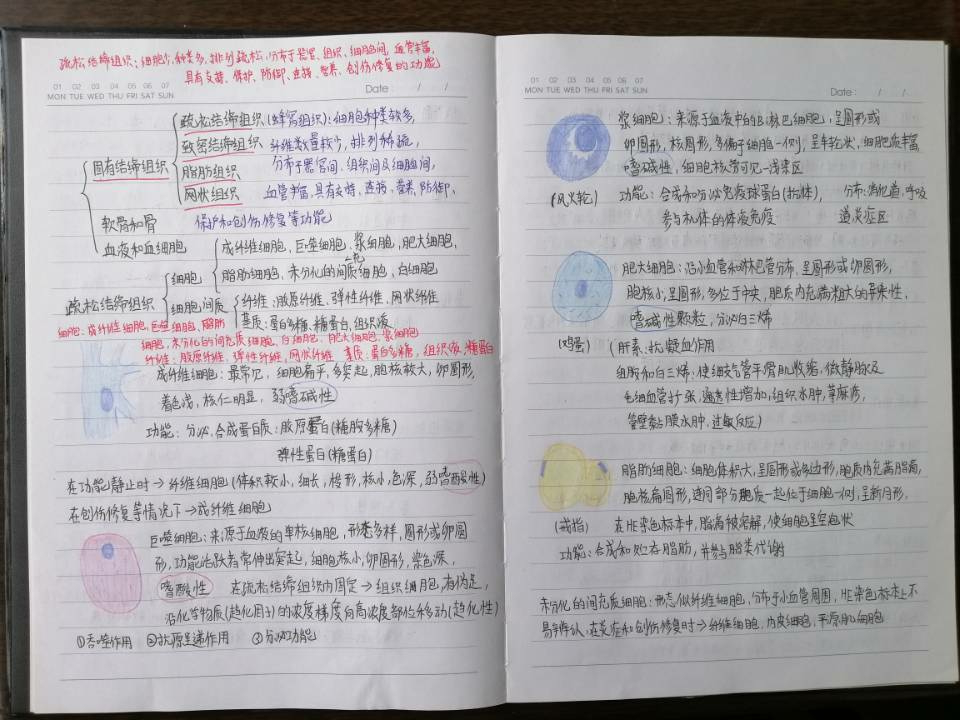 疏松结缔组织:细胞少,种类多,排列疏松,分布于器官、组织、细胞间,血管丰富,
具有支持、保护、防御、连接、营养、创伤修复的功能
01 02 03 04 05 06 07
MON TUE WED THU FRI SAT SUN
Date: / /
固有结缔组织
疏松结缔组织(蜂窝组织):细胞种类较多,
致密结缔组织 纤维数量较少,排列稀疏,
脂肪组织 分布于器官间、组织间及细胞间,
网状组织 血管丰富,具有支持、连接、营养、防御、
软骨和骨 保护和创伤修复等功能
血液和血细胞
疏松结缔组织
细胞
成纤维细胞,巨噬细胞、浆细胞,肥大细胞,
脂肪细胞,未分化的间充质细胞,白细胞
细胞间质
纤维:胶原纤维、弹性纤维、网状纤维
基质:蛋白多糖、糖蛋白、组织液
细胞:成纤维细胞、巨噬细胞、脂肪
细胞、未分化的间充质细胞、白细胞、肥大细胞、浆细胞
纤维:胶原纤维、弹性纤维、网状纤维 基质:蛋白多糖、组织液、糖蛋白
成纤维细胞:最常见,细胞扁平,多突起,胞核较大,卵圆形,
着色浅,核仁明显,弱嗜碱性
功能:分泌、合成蛋白质:胶原蛋白(糖胺多糖)
弹性蛋白(糖蛋白)
在功能静止时→纤维细胞(体积较小,细长,梭形,核小,色深,弱嗜酸性)
在创伤修复等情况下→成纤维细胞
巨噬细胞:来源于血液的单核细胞,形态多样,圆形或卵圆
形,功能活跃者常伸出突起,细胞核小,卵圆形,染色深,
嗜酸性 在疏松结缔组织内固定→组织细胞,有伪足,
沿化学物质(趋化因子)的浓度梯度向高浓度部位移动(趋化性)
①吞噬作用 ②抗原呈递作用 ③分泌功能
01 02 03 04 05 06 07
MON TUE WED THU FRI SAT SUN
Date: / /
浆细胞:来源于血液中的B淋巴细胞,呈圆形或
卵圆形,核圆形,多偏于细胞一侧,呈车轮状,细胞质丰富,
嗜碱性,细胞核旁可见一浅染区
(风火轮) 功能:合成和分泌免疫球蛋白(抗体), 分布:消化道、呼吸
参与机体的体液免疫 道炎症区
肥大细胞:沿小血管和淋巴管分布,呈圆形或卵圆形,
胞核小,呈圆形,多位于中央,胞质内充满粗大的异染性,
嗜碱性颗粒,分泌白三烯
(鸡蛋) (肝素:抗凝血作用
组胺和白三烯:使细支气管平滑肌收缩,微静脉及
毛细血管扩张,通透性增加,组织水肿,荨麻疹,
管壁黏膜水肿,过敏反应)
脂肪细胞:细胞体积大,呈圆形或多边形,胞质内充满脂滴,
胞核扁圆形,连同部分胞质一起位于细胞一侧,呈新月形,
(戒指) 在HE染色标本中,脂滴被溶解,使细胞呈空泡状
功能:合成和贮存脂肪,并参与脂类代谢
未分化的间充质细胞:形态似纤维细胞,分布于小血管周围,HE染色标本上不
易辨认,在炎症和创伤修复时→纤维细胞,内皮细胞,平滑肌细胞